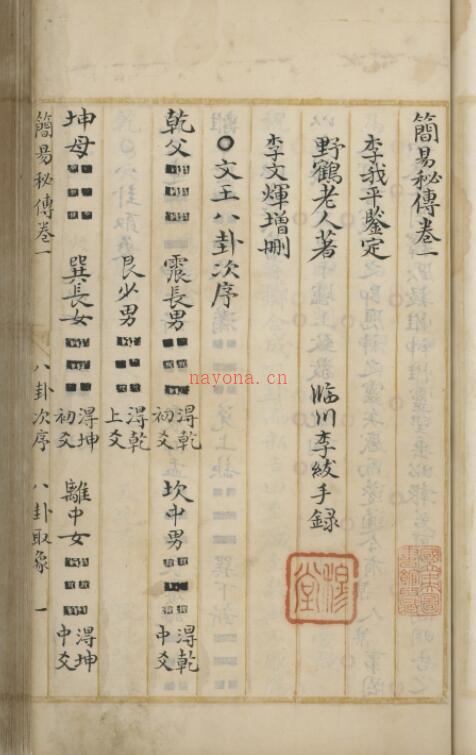 簡易秘傳卷一
李我平鑒定
野鶴老人著 臨川李紱手録
李文煇增刪
○文王八卦次序
乾父 震長男 淂乾初爻 坎中男 淂乾中爻
艮少男 淂乾上爻
坤母 巽長女 淂坤初爻 離中女 淂坤中爻
簡易秘傳卷一 八卦次序 八卦取象 一
穆堂
nayona.cn